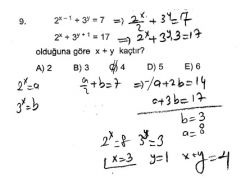 9. 2^(x−1) + 3^y = 7 => 2^x/2 + 3^y = 7
2^x + 3^(y+1) = 17 => 2^x + 3^y.3 = 17
olduğuna göre x + y kaçtır?
A) 2 B) 3 C) 4 D) 5 E) 6
2^x = a
3^x = b
a/2 + b = 7 => -/a + 2b = 14
a + 3b = 17
b = 3
a = 8
2^x = 8 3^y = 3
x = 3 y = 1 x + y = 4